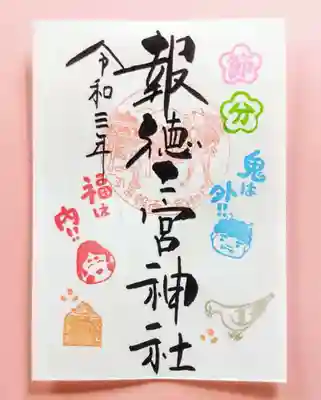 節分
鬼は
外!!
報徳二宮神社
令和三年
福は
内!!